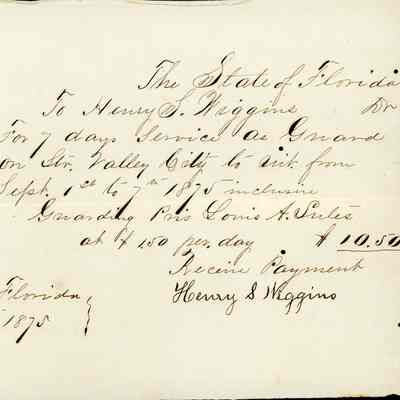 The State of Florida
To Henry S. Wiggins Dr
For 7 days Service as Guard
on Str. Valley City to & from
Sept. 1st to 7th 1875 inclusive
Guarding Pris Louis A.
at $1.50 per day $10.50
Receive Payment
Henry S Wiggins
Florida
1875